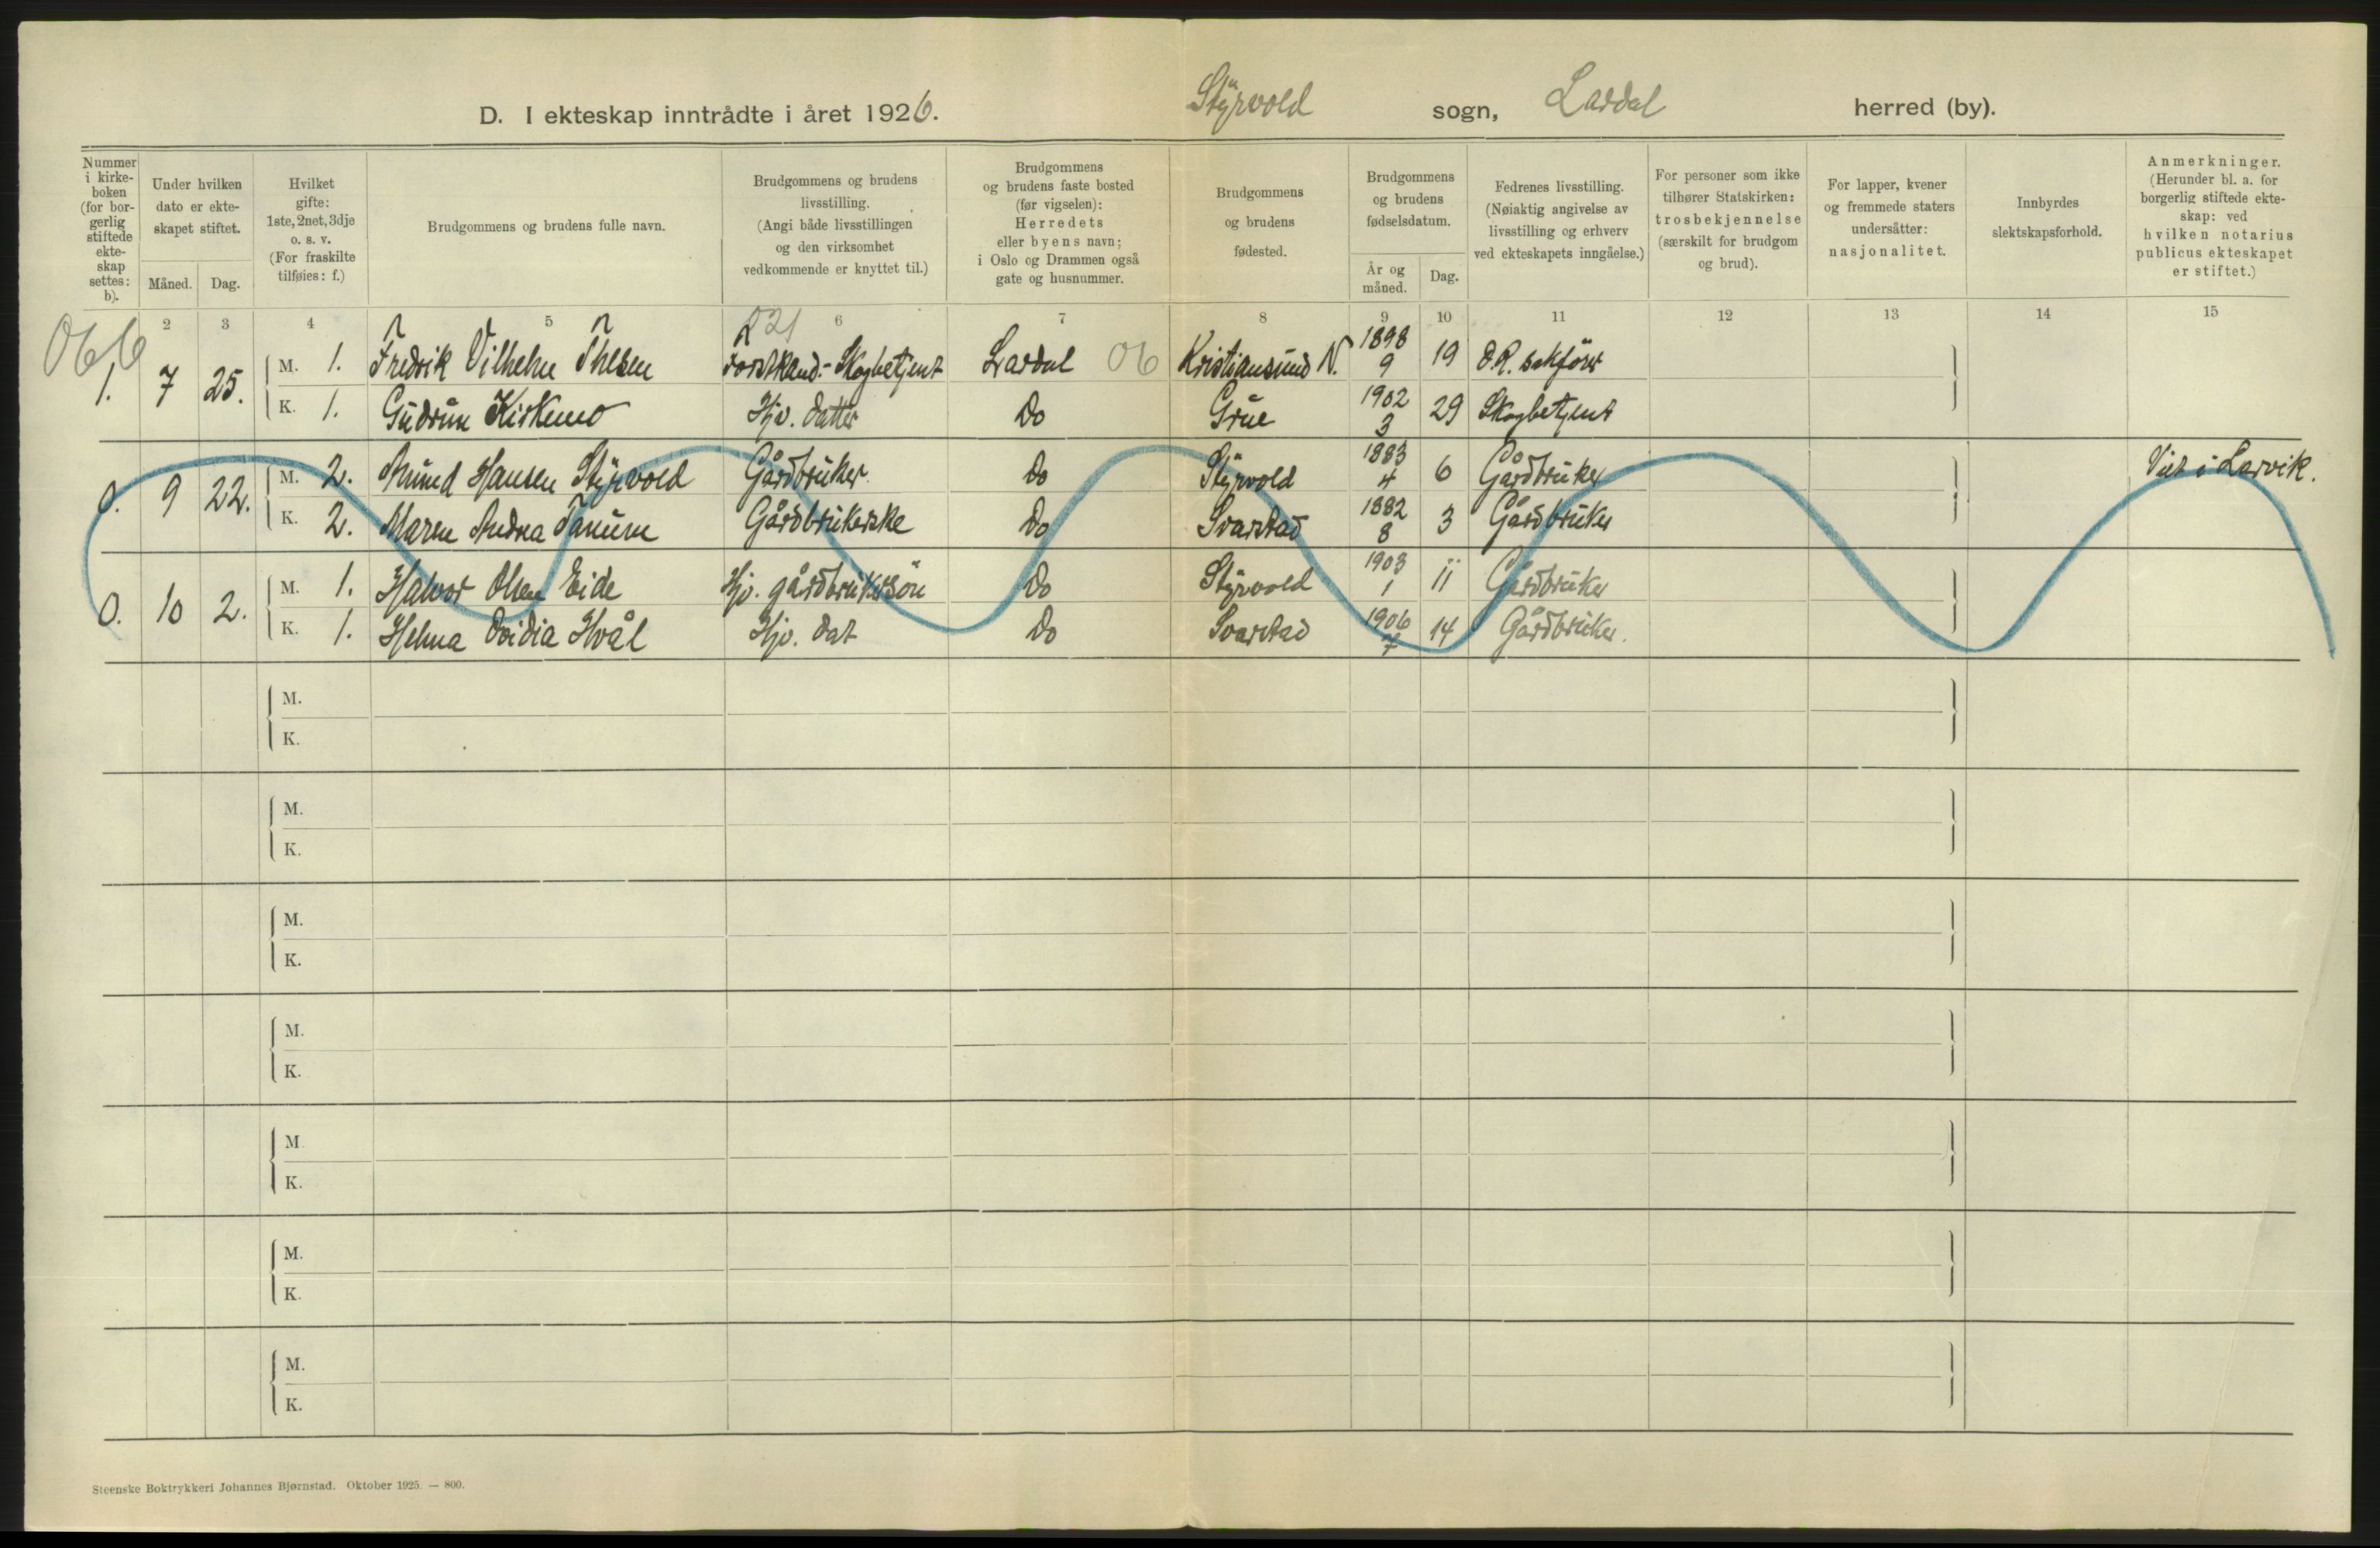 D. I ekteskap inntrådte i året 1926. Styrvold sogn, Lardal herred (by).
Nummer i kirke-boken (for bor-gerlig stiftede ekte-skap settes: b).
Under hvilken dato er ekte-skapet stiftet.
Måned. Dag.
Hvilket gifte: 1ste, 2net, 3dje o. s. v. (For fraskilte tilføies: f.)
Brudgommens og brudens fulle navn.
Brudgommens og brudens livsstilling. (Angi både livsstillingen og den virksomhet vedkommende er knyttet til.)
Brudgommens og brudens faste bosted (før vigselen): Herredets eller byens navn; i Oslo og Drammen også gate og husnummer.
Brudgommens og brudens fødested.
Brudgommens og brudens fødselsdatum.
År og måned. Dag.
Fedrenes livsstilling. (Nøiaktig angivelse av livsstilling og erhverv ved ekteskapets inngåelse.)
For personer som ikke tilhører Statskirken: trosbekjennelse (særskilt for brudgom og brud).
For lapper, kvener og fremmede staters undersåtter: nasjonalitet.
Innbyrdes slektskapsforhold.
Anmerkninger. (Herunder bl. a. for borgerlig stiftede ekte-skap: ved hvilken notarius publicus ekteskapet er stiftet.)
2 3 4 5 6 7 8 9 10 11 12 13 14 15
066 221
1. 7 25. M. 1. Fredrik Vilhelm Thesen Forstkand.- Skogbetjent Lardal 06 Kristiansund N. 1898 9 19 O.R. sakfører
K. 1. Gudrun Kirkemo Hjv. datter Do Grue 1902 3 29 Skogbetjent
0. 9 22. M. 2. Amund Hansen Styrvold Gårdbruker Do Styrvold 1883 4 6 Gårdbruker Viet i Larvik.
K. 2. Maren Andrea Tanum Gårdbrukerske Do Svarstad 1882 8 3 Gårdbruker
0. 10 2. M. 1. Halvor Olsen Eide Hjv. gårdbrukersön Do Styrvold 1903 1 11 Gårdbruker
K. 1. Helma Ovidia Hvål Hjv. dat Do Svarstad 1906 7 14 Gårdbruker.
M.
K.
M.
K.
M.
K.
M.
K.
M.
K.
M.
K.
M.
K.
Steenske Boktrykkeri Johannes Bjørnstad. Oktober 1925. — 800.